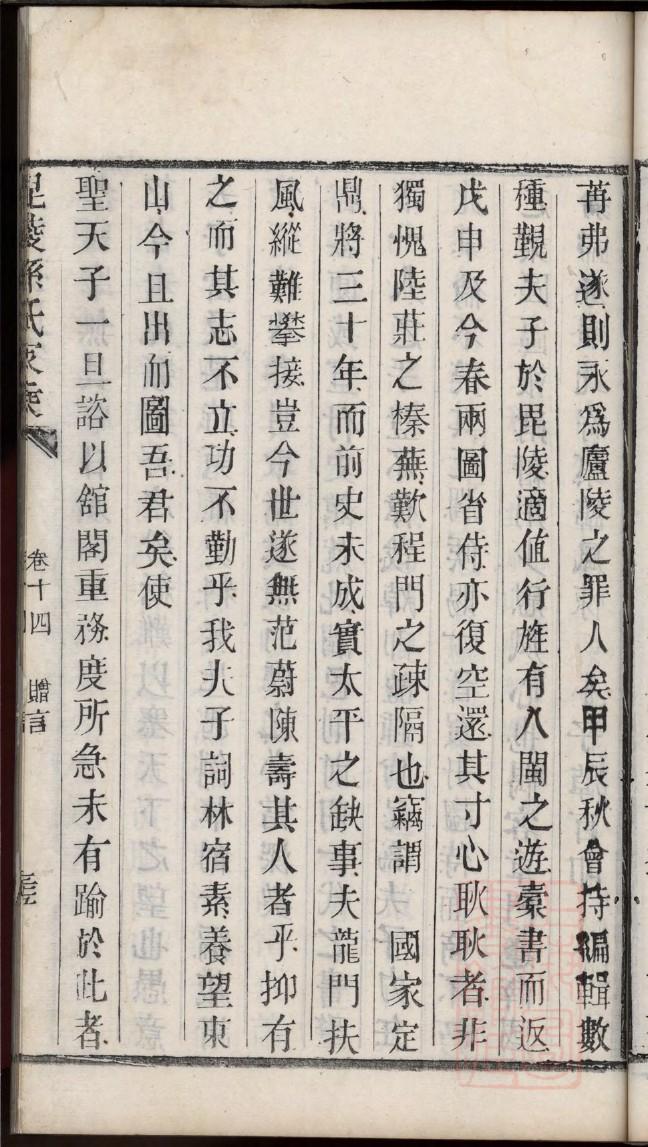 苒弗遂則永為廬陵之罪人矣甲辰秋會持編輯數
種覲夫子於毘陵適值行旌有入閩之遊橐書而返
戊申及今春兩圖省侍亦復空還其寸心耿耿者非
獨愧陸莊之榛蕪歎程門之疎隔也竊謂　國家定
鼎將三十年而前史未成實太平之缺事夫龍門扶
風縱難攀接豈今世遂無范蔚陳壽其人者乎抑有
之而其志不立功不勤乎我夫子詞林宿素養望東
山今且出而圖吾君矣使
聖天子一旦諮以舘閣重務度所急未有踰於此者
毘陵孫氏家乘
卷十四　贈言